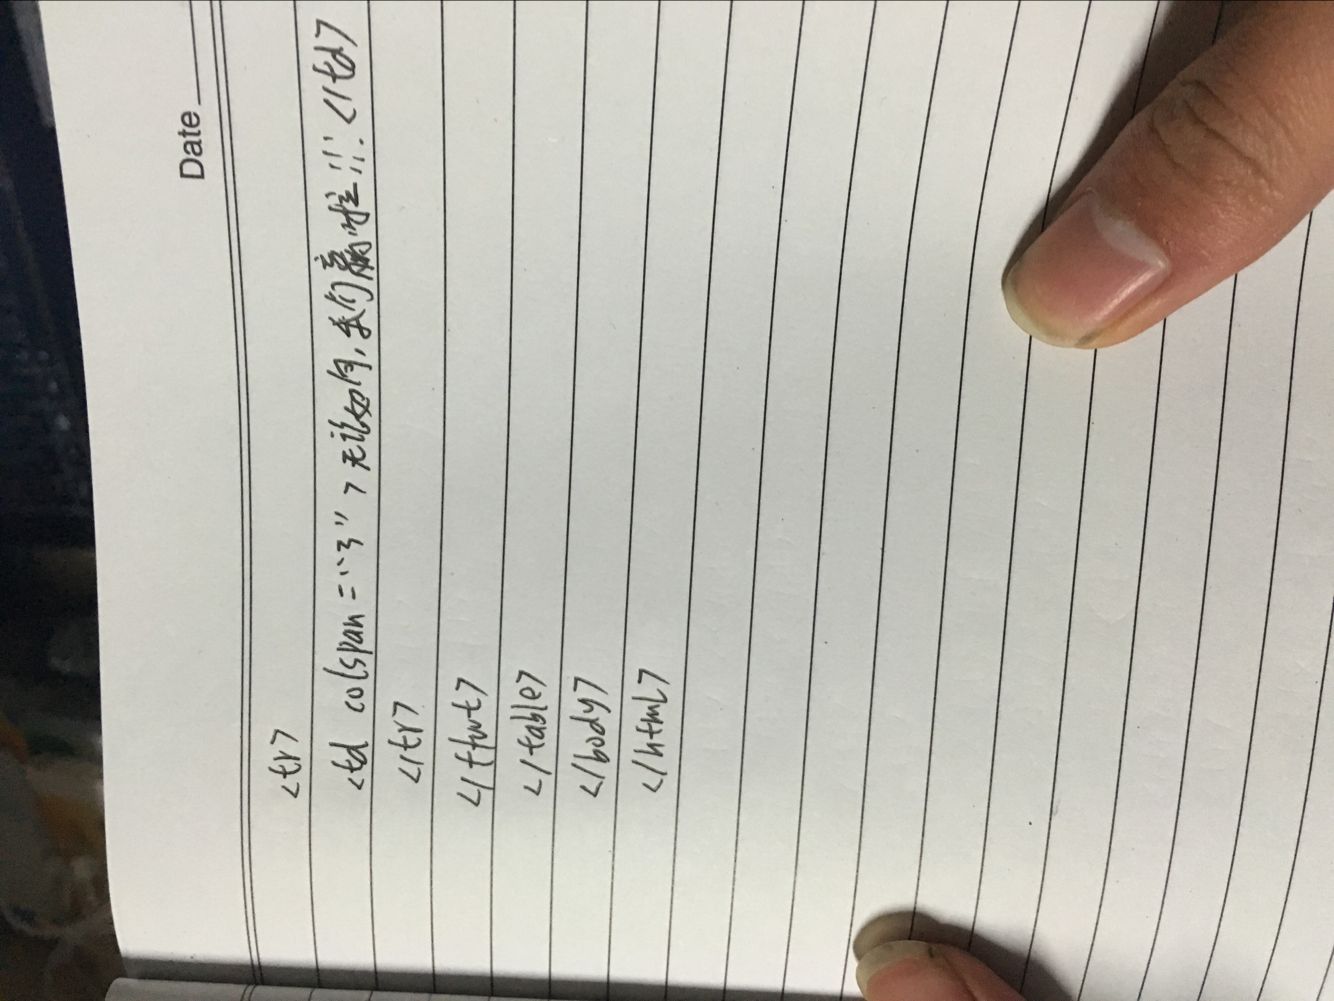 Date
<tr>
<td colspan="3">无论如何,我们赢啦!!!</td>
</tr>
</tfoot>
</table>
</body>
</html>